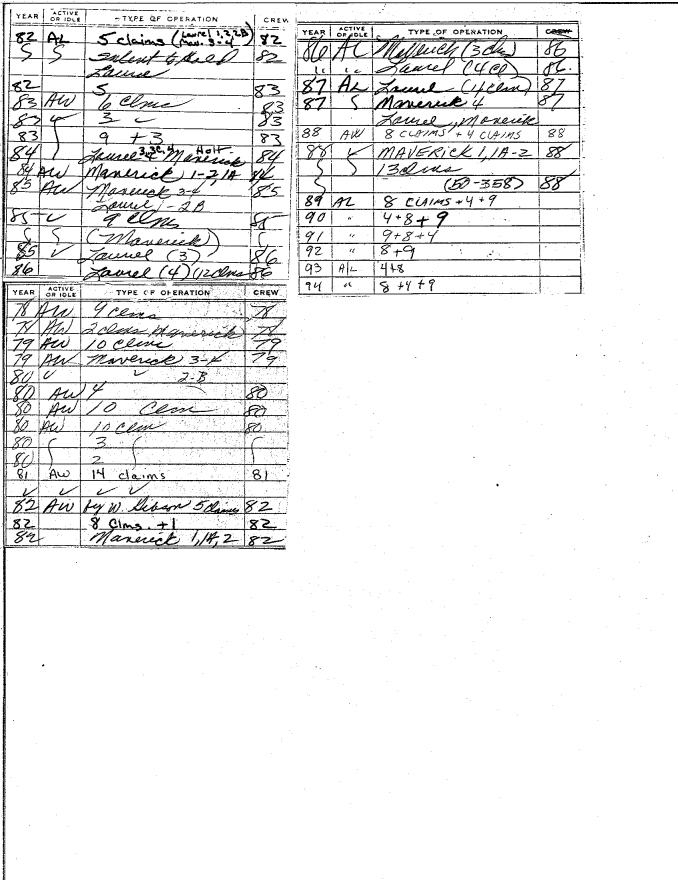 YEAR ACTIVE OR IDLE TYPE OF OPERATION CREW
82 AL 5 claims (Laurel 1,2,2B Mav. 3-4) 82
intent to Hold 82
Laurel
82 5 83
83 AW 6 Clms 83
83 3 ✓ 83
83 9 + 3 83
84 Laurel Maverick 84
84 AW Maverick 1-2, 1A 84
85 AW Maverick 3-4 85
Laurel 1-2B
85 ✓ 9 Clms 85
(Maverick)
85 ✓ Laurel (3) 86
86 Laurel (4) (12 Clms 86
YEAR ACTIVE OR IDLE TYPE OF OPERATION CREW
78 AW 9 clms 78
78 AW 2 clms Maverick 78
79 AW 10 Clms 79
79 AW Maverick 3-4 79
80 ✓ ✓ 2-B
80 AW 4 80
80 AW 10 Clm 80
80 AW 10 Clm 80
80 3
80 2
81 AW 14 claims 81
✓ ✓ ✓ ✓
82 AW by W. Gibson 5 claims 82
82 8 Clms. +1 82
82 Maverick 1, 1A, 2 82
YEAR ACTIVE OR IDLE TYPE OF OPERATION CREW
86 AL Maverick (3 clms) 86
" " Laurel (4 Cl) 86
87 AL Laurel (4 Clm) 87
87 Maverick 4 87
Laurel, Maverick
88 AW 8 CLAIMS + 4 CLAIMS 88
88 ✓ MAVERICK 1, 1A-2 88
13 clms
(50-358) 88
89 AL 8 CLAIMS + 4 + 9
90 " 4+8+9
91 " 9+8+4
92 " 8+9
93 A/L 4+8
94 " 8+4+9